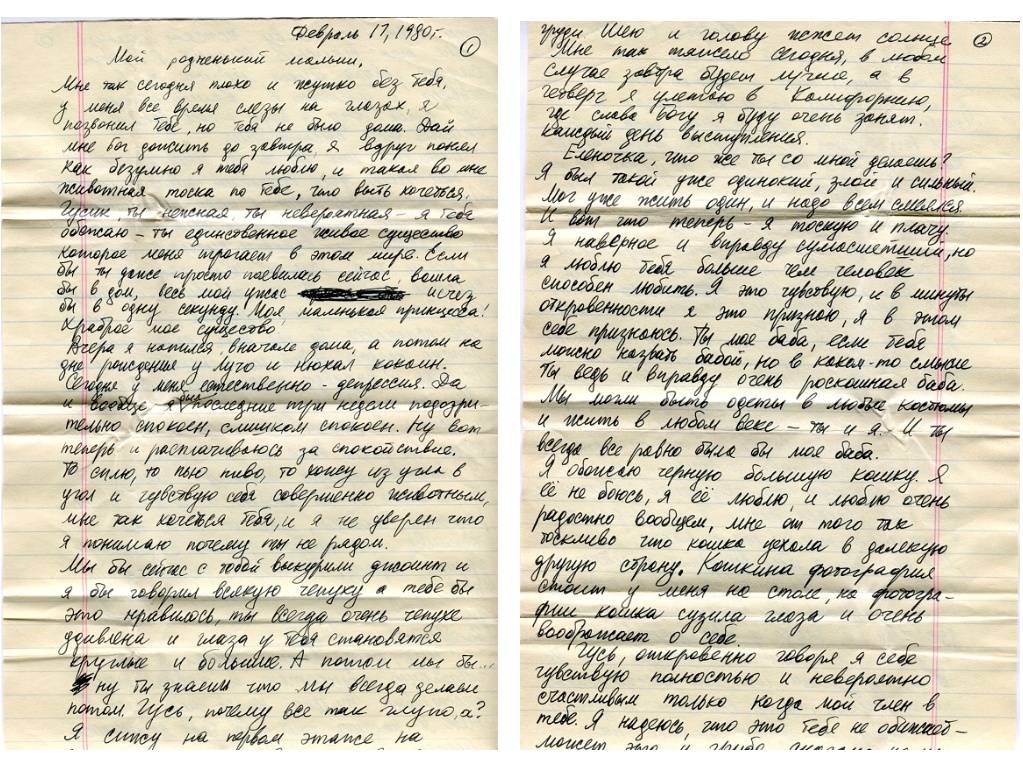 Февраль 17, 1980г.
1
Мой родненький малыш,
Мне так сегодня плохо и жутко без тебя,
у меня все время слезы на глазах, я
позвонил тебе, но тебя не было дома. Дай
мне бог дожить до завтра, я вдруг понял
как безумно я тебя люблю, и такая во мне
животная тоска по тебе, что выть хочеться.
Гусик, ты нежная, ты невероятная – я тебя
обожаю – ты единственное живое существо
которое меня трогает в этом мире. Если
бы ты даже просто появилась сейчас, вошла
бы в дом, весь мой ужас исчез
бы в одну секунду. Моя маленькая принцесса!
Храброе мое существо
Вчера я напился, вначале дома, а потом на
дне рождения у и нюхал кокаин.
Сегодня у меня естественно – депрессия. Да
и вообще я был последние три недели подозри-
тельно спокоен, слишком спокоен. Ну вот
теперь и расплачиваюсь за спокойствие.
То сплю, то пью пиво, то хожу из угла в
угол и чувствую себя совершенно животным,
мне так хочеться тебя, и я не уверен что
я понимаю почему ты не рядом.
Мы бы сейчас с тобой выкурили джоинт и
я бы говорил всякую чепуху а тебе бы
это нравилось, ты всегда очень чепухе
удивлена и глаза у тебя становятся
круглые и большие. А потом мы бы...
ну ты знаешь что мы всегда делаем
потом. Гусь, почему все так глупо, а?
Я сижу на первом этаже на
2
груди. Шею и голову жжет солнце
Мне так тяжело сегодня, в любом
случае завтра будет лучше, а в
четверг я улетаю в Калифорнию,
где слава богу я буду очень занят.
Каждый день выступления.
Еленочка, что же ты со мной делаешь?
Я был такой уже одинокий, злой и сильный.
Мог уже жить один, и надо всем смеялся.
И вот что теперь – я тоскую и плачу.
Я наверное и вправду сумасшедший, но
я люблю тебя больше чем человек
способен любить. Я это чувствую, и в минуты
откровенности я это признаю, я в этом
себе признаюсь. Ты моя баба, если тебя
можно назвать бабой, но в каком-то смысле
ты ведь и вправду очень роскошная баба.
Мы могли быть одеты в любые костюмы
и жить в любом веке – ты и я. И ты
всегда все равно была бы моя баба.
Я обожаю черную большую кошку. Я
её не боюсь, я её люблю, и люблю очень
радостно вообщем, мне от того так
тоскливо что кошка уехала в далекую
другую страну. Кошкина фотография
стоит у меня на столе, на фотогра-
фии кошка сузила глаза и очень
воображает о себе.
Гусь, откровенно говоря я себя
чувствую полностью и невероятно
счастливым только когда мой член в
тебе. Я надеюсь, что это тебе не обижает –
может это и грубо